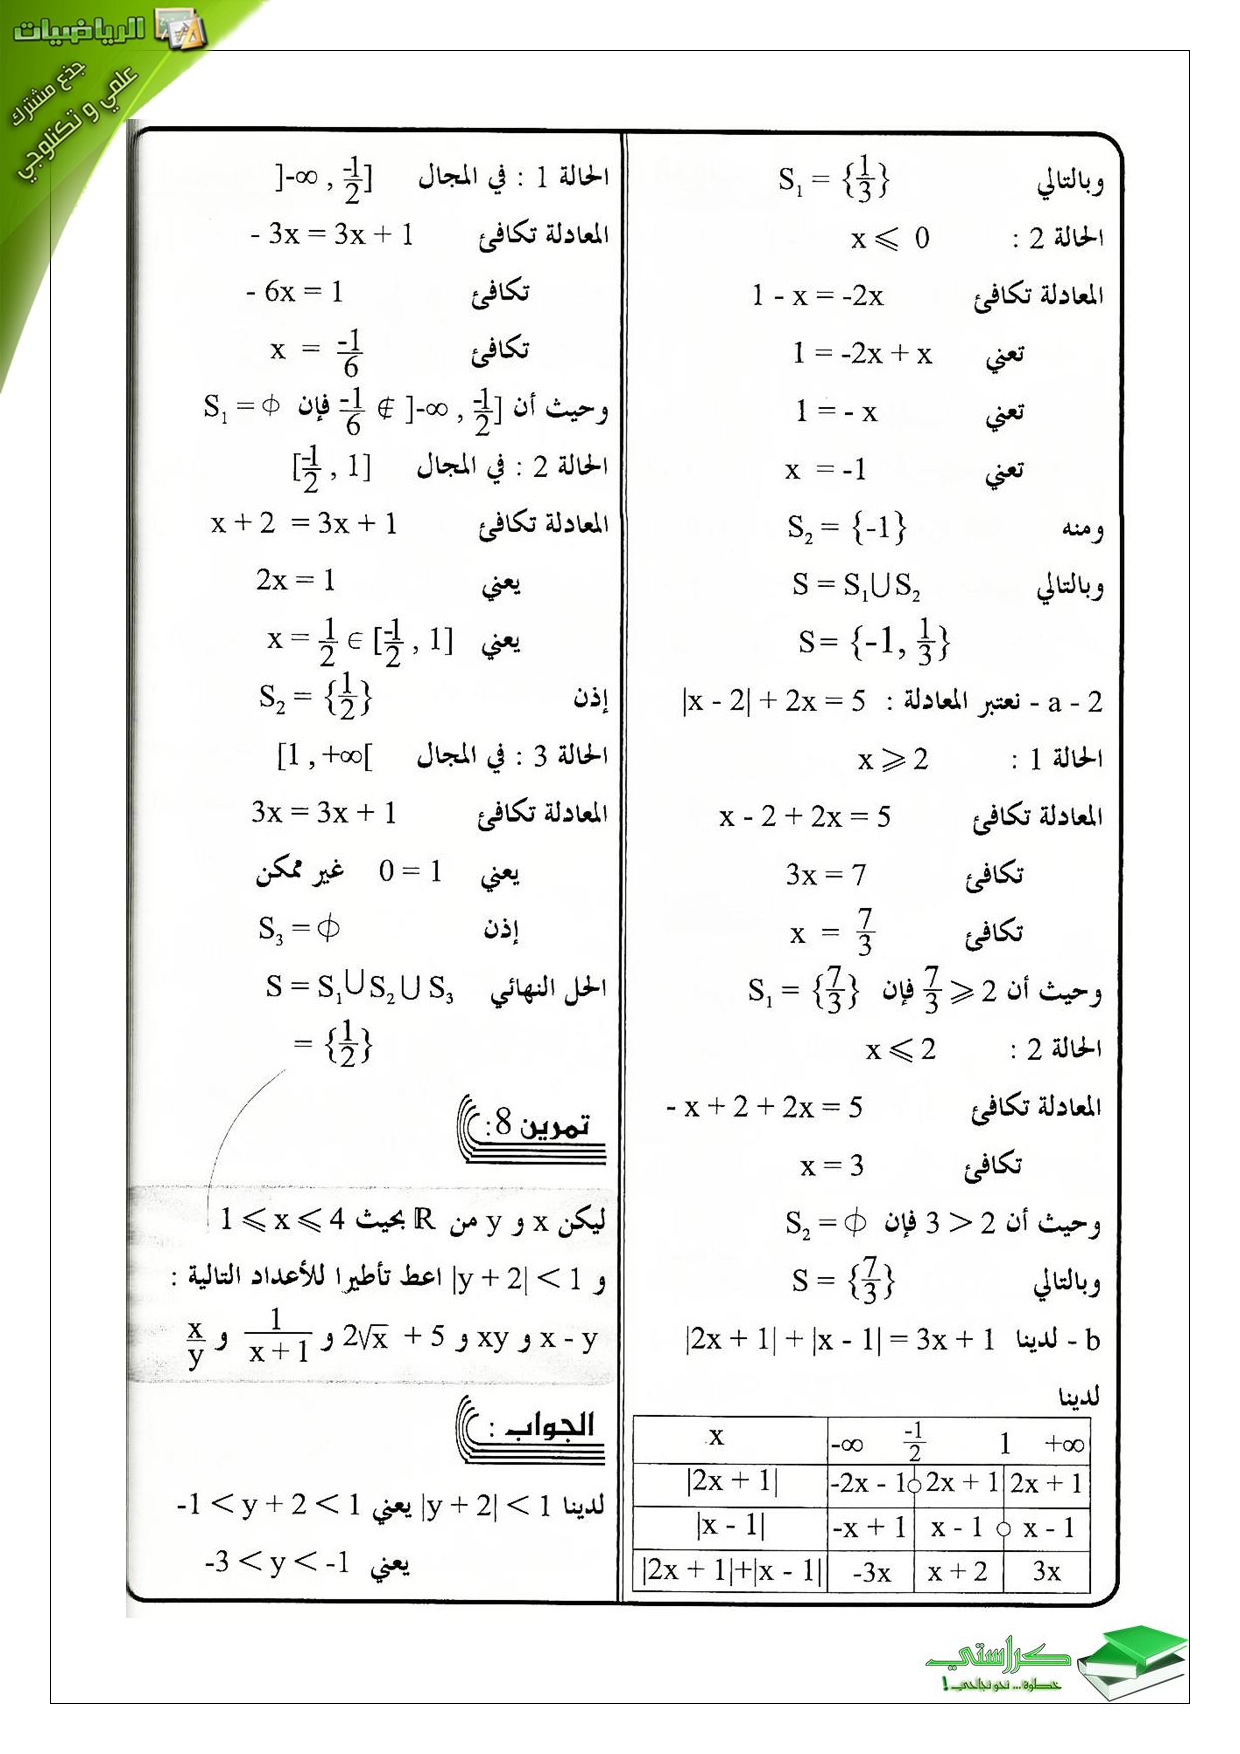 الرياضيات
جذع مشترك
علمي و تكنلوجي
وبالتالي S₁ = {1/3}
الحالة 2 : x ⩽ 0
المعادلة تكافئ 1 - x = -2x
تعني 1 = -2x + x
تعني 1 = - x
تعني x = -1
ومنه S₂ = {-1}
وبالتالي S = S₁∪S₂
S = {-1, 1/3}
2 - a - نعتبر المعادلة : |x - 2| + 2x = 5
الحالة 1 : x ⩾ 2
المعادلة تكافئ x - 2 + 2x = 5
تكافئ 3x = 7
تكافئ x = 7/3
وحيث أن 7/3 ⩾ 2 فإن S₁ = {7/3}
الحالة 2 : x ⩽ 2
المعادلة تكافئ - x + 2 + 2x = 5
تكافئ x = 3
وحيث أن 3 > 2 فإن S₂ = ϕ
وبالتالي S = {7/3}
b - لدينا |2x + 1| + |x - 1| = 3x + 1
لدينا
x -∞ -1/2 1 +∞
|2x + 1| -2x - 1 2x + 1 2x + 1
|x - 1| -x + 1 x - 1 x - 1
|2x + 1|+|x - 1| -3x x + 2 3x
الحالة 1 : في المجال ]-∞ , -1/2]
المعادلة تكافئ - 3x = 3x + 1
تكافئ - 6x = 1
تكافئ x = -1/6
وحيث أن -1/6 ∉ ]-∞ , -1/2] فإن S₁ = ϕ
الحالة 2 : في المجال [-1/2 , 1]
المعادلة تكافئ x + 2 = 3x + 1
يعني 2x = 1
يعني x = 1/2 ∈ [-1/2 , 1]
إذن S₂ = {1/2}
الحالة 3 : في المجال [1 , +∞[
المعادلة تكافئ 3x = 3x + 1
يعني 0 = 1 غير ممكن
إذن S₃ = ϕ
الحل النهائي S = S₁∪S₂∪S₃
= {1/2}
تمرين 8:
ليكن x و y من ℝ بحيث 1 ⩽ x ⩽ 4
و |y + 2| < 1 اعط تأطيرا للأعداد التالية :
x - y و xy و 2√x + 5 و 1/(x + 1) و x/y
الجواب :
لدينا |y + 2| < 1 يعني -1 < y + 2 < 1
يعني -3 < y < -1
كراستي
خطوة... نحو نجاحي !